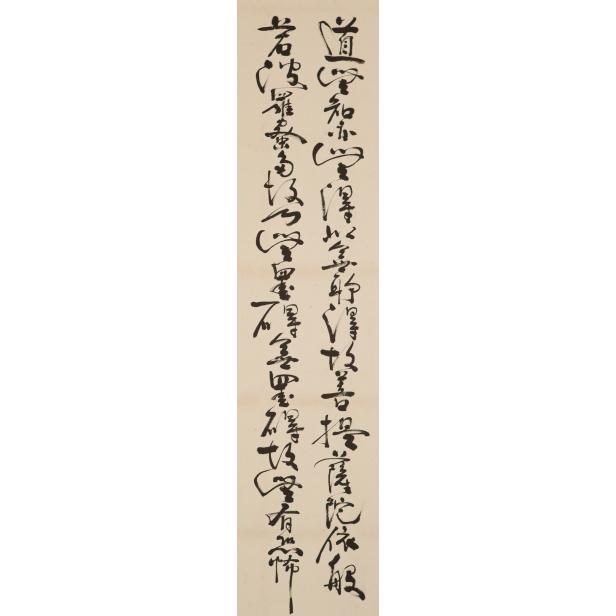 道無知亦無得以無所得故菩提薩陀依般
若波羅蜜多故心無罣碍無罣碍故無有恐怖